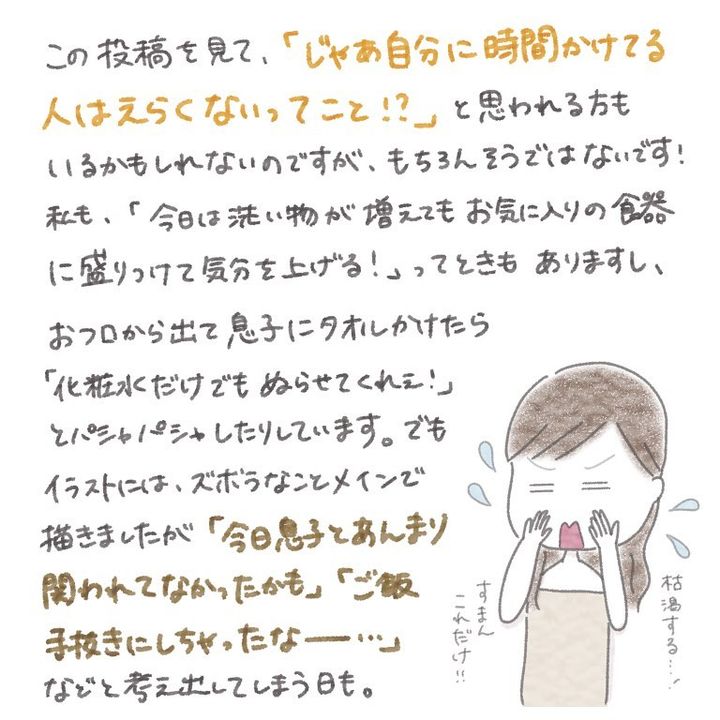 この投稿を見て、「じゃあ自分に時間かけてる
人はえらくないってこと!?」と思われる方も
いるかもしれないのですが、もちろんそうではないです!
私も、「今日は洗い物が増えてもお気に入りの食器
に盛りつけて気分を上げる!」ってときもありますし、
おフロから出て息子にタオルかけたら
「化粧水だけでもぬらせてくれぇ!」
とパシャパシャしたりしています。でも
イラストには、ズボラなことメインで
描きましたが「今日息子とあんまり
関われてなかったかも」「ご飯
手抜きにしちゃったなー…」
などと考え出してしまう日も。
枯渇する…!
すまん
これだけ!!